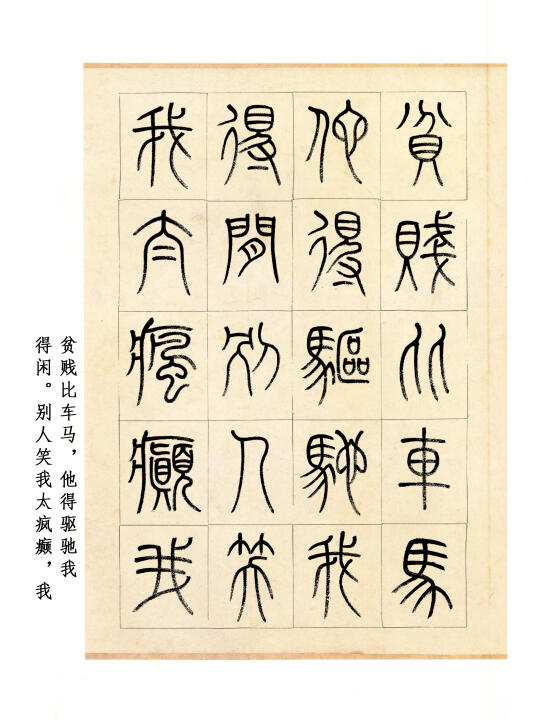 貧賤比車馬
佗得驅馳我
得閒別人笑
我太瘋癲我
贫贱比车马，他得驱驰我
得闲。别人笑我太疯癫，我